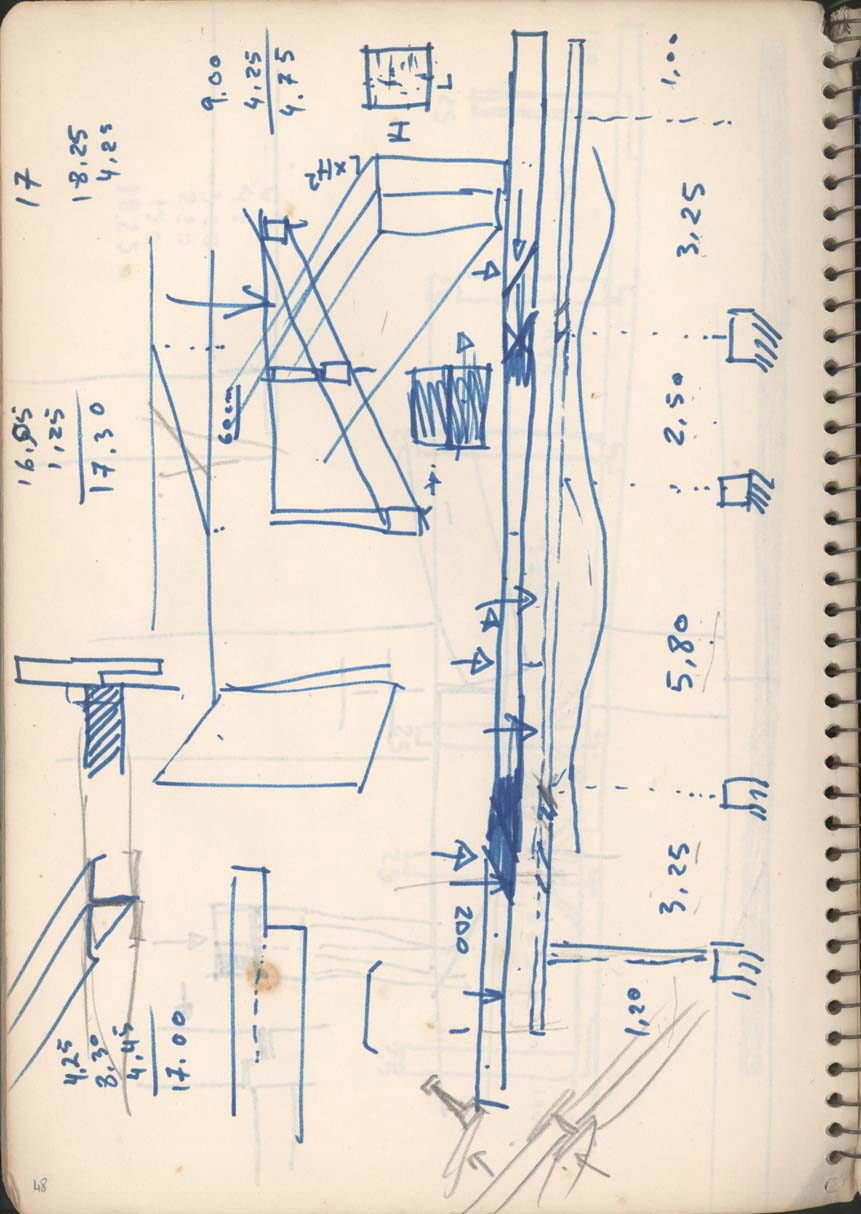 17
18.25
4,25
9.00
4.25
4.75
L
H
16.95
1,25
17.30
60cm
1,00
3,25
2,50
5,80
3,25
1,20
200
4,25
8,30
4.45
17.00
48